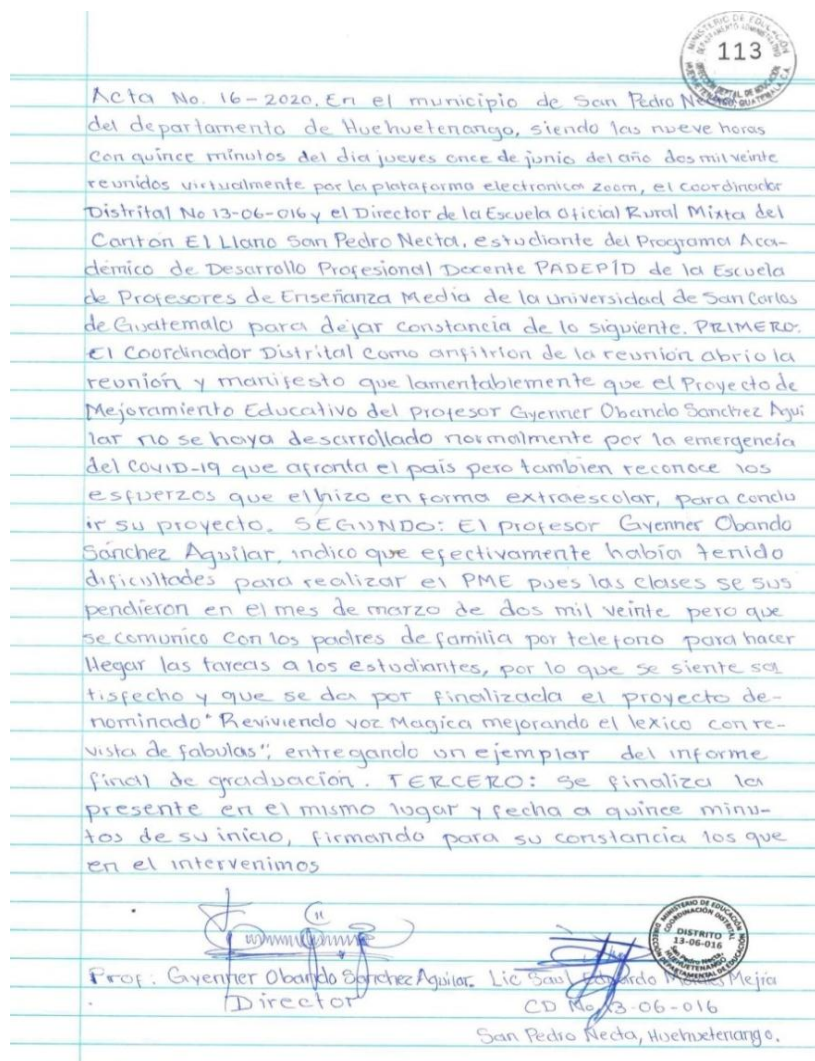 MINISTERIO DE EDUCACIÓN
113
Acta No. 16-2020. En el municipio de San Pedro
del departamento de Huehuetenango, siendo las nueve horas
con quince minutos del dia jueves once de junio del año dos mil veinte
reunidos virtualmente por la plataforma electronica zoom, el coordinador
Distrital No 13-06-016 y el Director de la Escuela Oficial Rural Mixta del
Cantón El Llano San Pedro Necta, estudiante del Programa Aca-
démico de Desarrollo Profesional Docente PADEP/D de la Escuela
de Profesores de Enseñanza Media de la universidad de San Carlos
de Guatemala para dejar constancia de lo siguiente. PRIMERO:
El Coordinador Distrital como anfitrion de la reunión abrio la
reunión y manifesto que lamentablemente que el Proyecto de
Mejoramiento Educativo del profesor Gyenner Obando Sanchez Agui
lar no se haya desarrollado normalmente por la emergencia
del COVID-19 que afronta el país pero tambien reconoce los
esfuerzos que el hizo en forma extraescolar, para conclu
ir su proyecto. SEGUNDO: El profesor Gyenner Obando
Sánchez Aguilar, indico que efectivamente había tenido
dificultades para realizar el PME pues las clases se sus
pendieron en el mes de marzo de dos mil veinte pero que
se comunico con los padres de familia por telefono para hacer
llegar las tareas a los estudiantes, por lo que se siente sa
tisfecho y que se da por finalizada el proyecto de-
nominado "Reviviendo voz Magica mejorando el lexico con re-
vista de fabulas"; entregando un ejemplar del informe
final de graduación. TERCERO: se finaliza la
presente en el mismo lugar y fecha a quince minu-
tos de su inicio, firmando para su constancia los que
en el intervenimos
MINISTERIO DE EDUCACIÓN
COORDINACIÓN DISTRITAL
DISTRITO
13-06-016
San Pedro Necta,
HUEHUETENANGO
DIRECCIÓN DEPARTAMENTAL DE EDUCACIÓN
Prof: Gyenner Obando Sanchez Aguilar. Lic Saul Eduardo Morales Mejia
Director CD No. 13-06-016
San Pedro Necta, Huehuetenango.